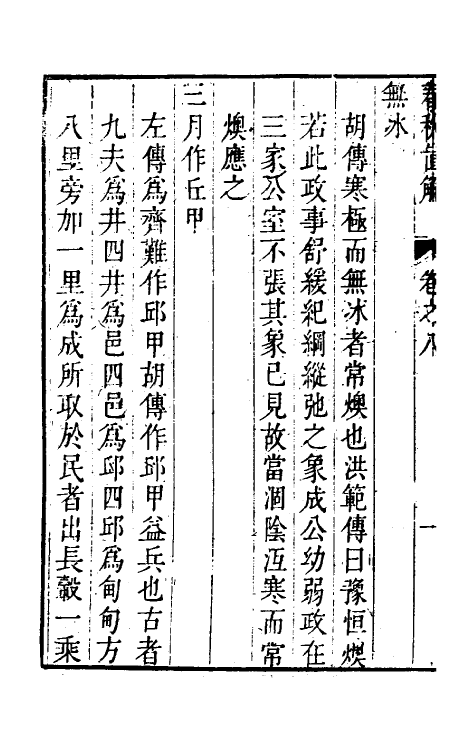 春秋直解 卷之八 一
無冰
胡傳寒極而無冰者常燠也洪範傳曰豫恒燠
若此政事舒緩紀綱縱弛之象成公幼弱政在
三家公室不張其象已見故當涸陰沍寒而常
燠應之
三月作丘甲
左傳爲齊難作邱甲胡傳作邱甲益兵也古者
九夫爲井四井爲邑四邑爲邱四邱爲甸甸方
八里旁加一里爲成所取於民者出長轂一乘